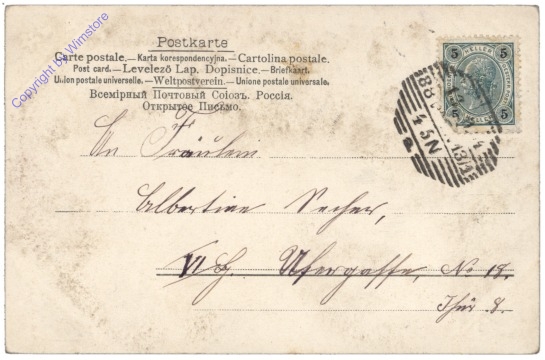 Copyright by Wimstore
Postkarte
Carte postale.—Karta korespondencyjna.—Cartolina postale.
Post card.—Levelező Lap. Dopisnice.—Briefkaart.
Union postale universelle.—Weltpostverein.—Unione postale universale.
Всемірный Почтовый Союзъ. Россія.
Открытое Письмо.
5 HELLER 5
5 5
88
4 5 N
An Fräulein
Albertine Secher,
VI Ufergasse, No 18.
Thür 8.